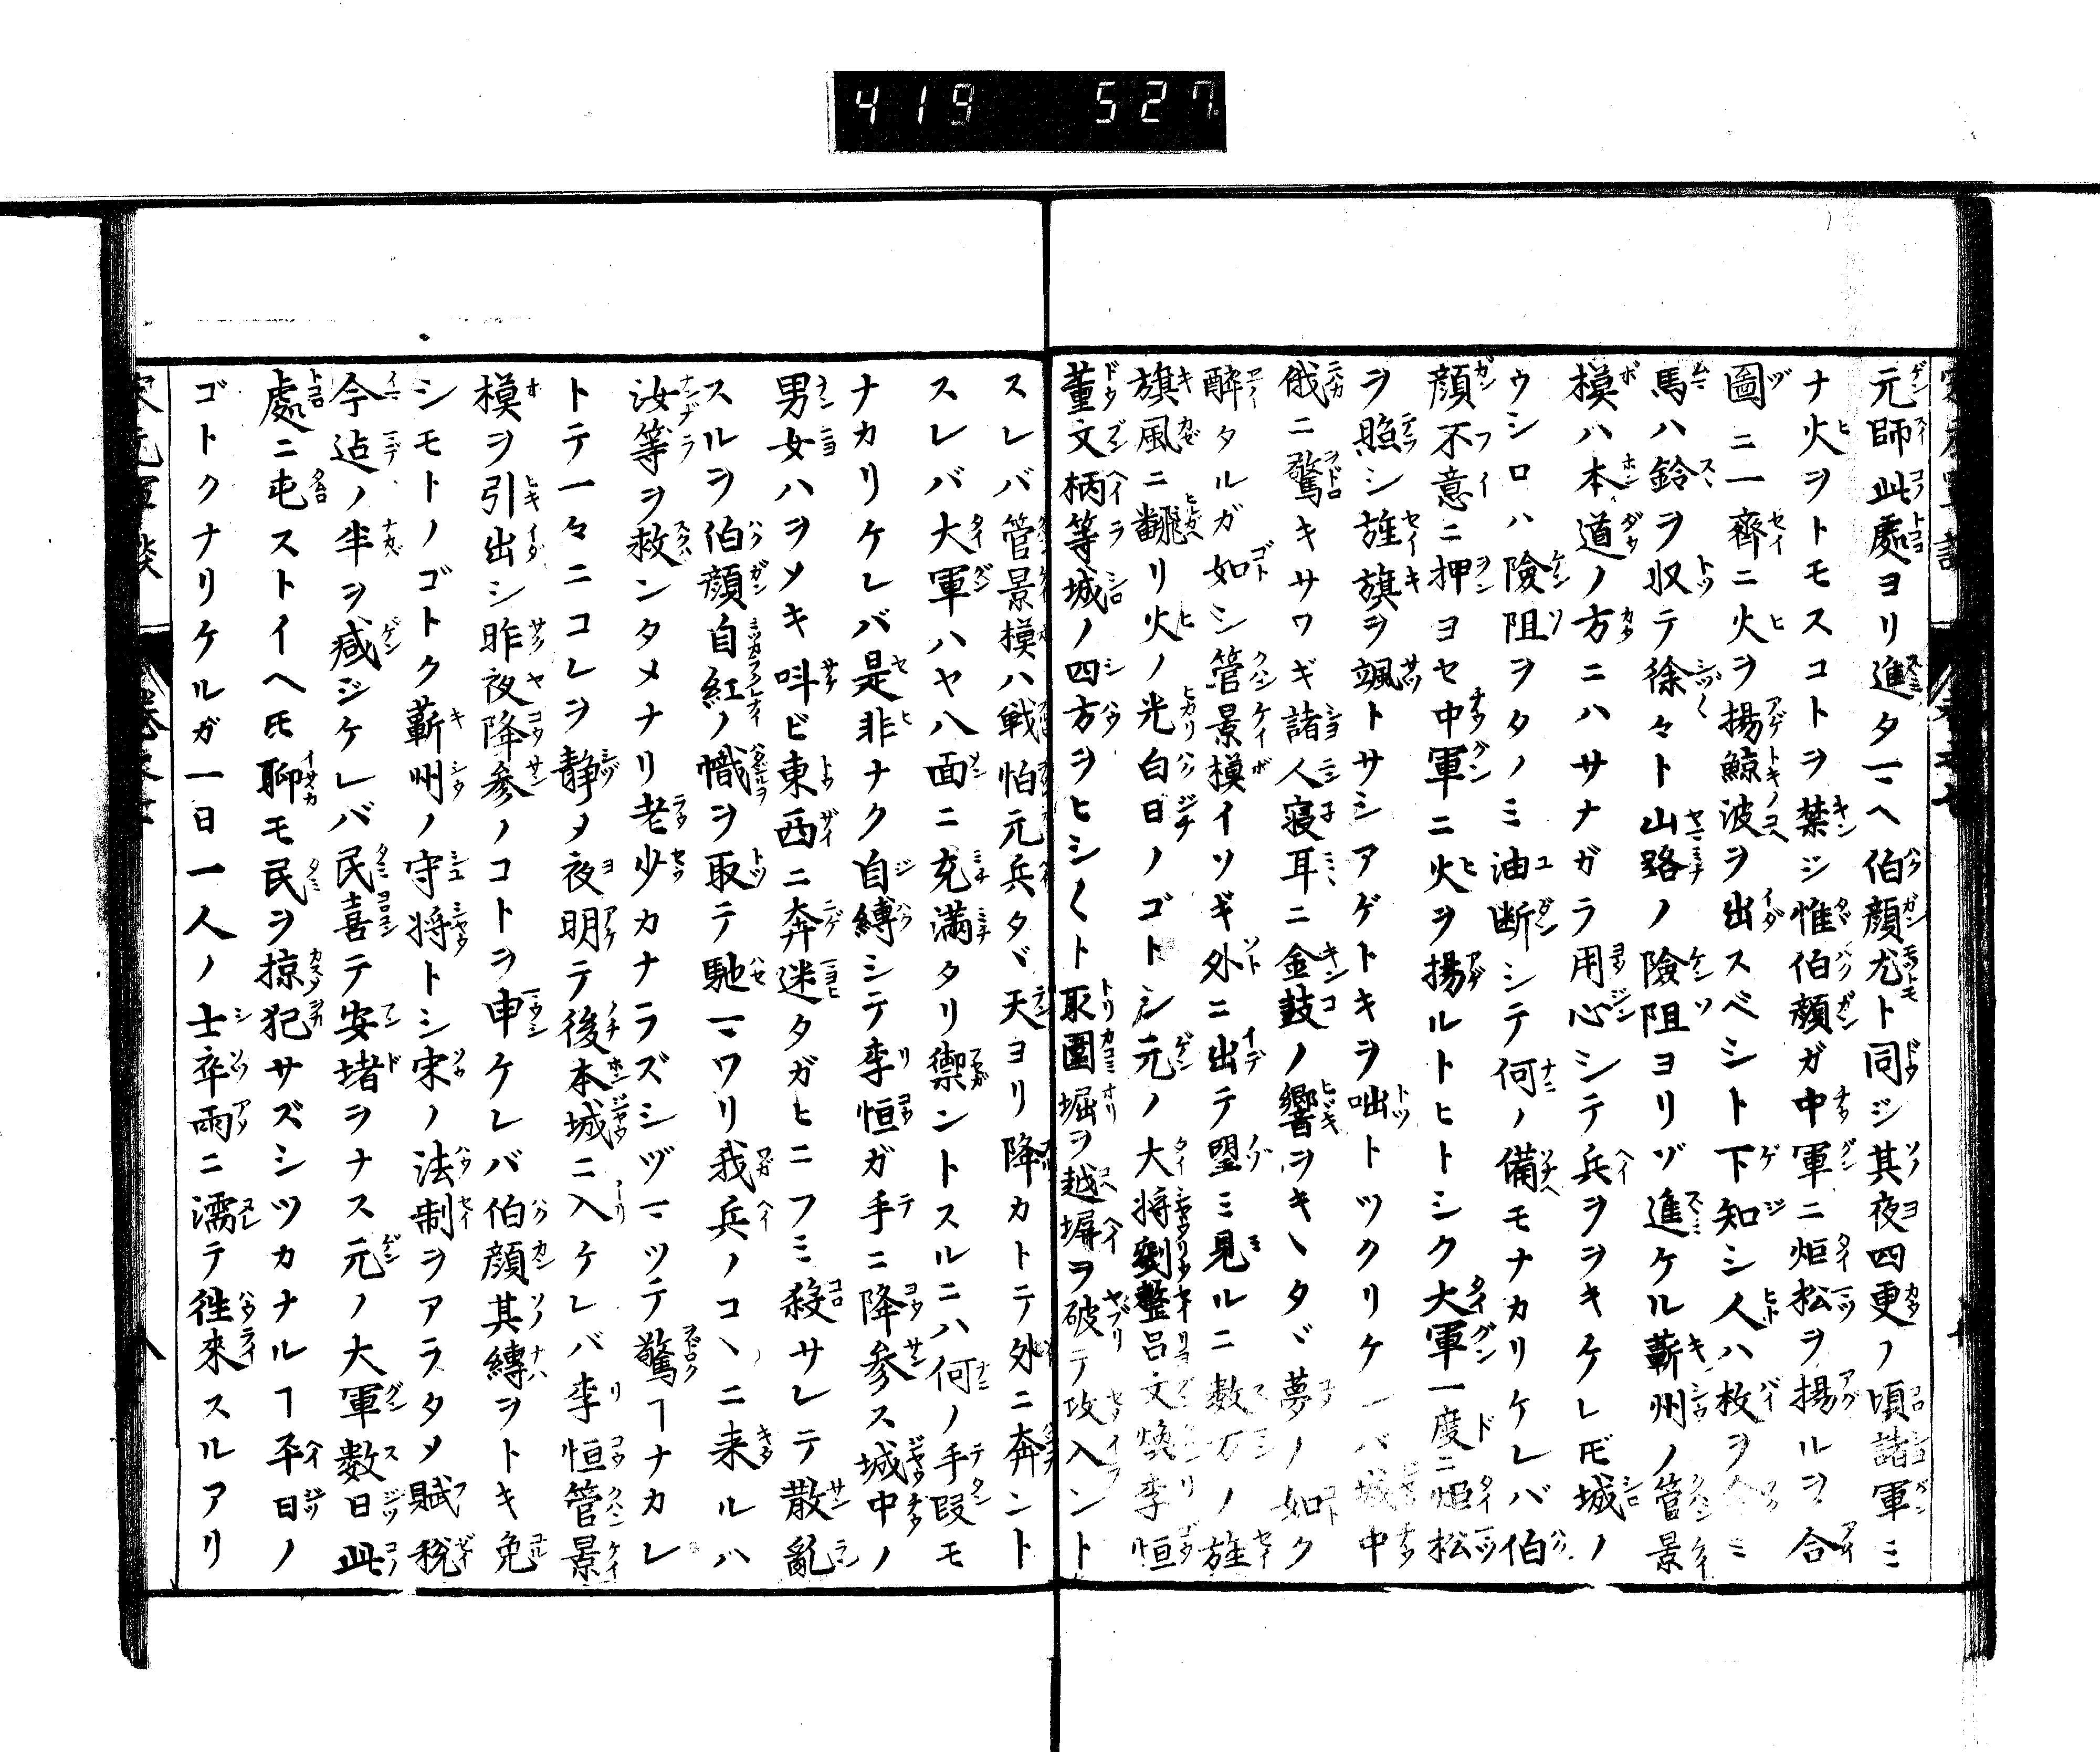 419 527
元師此處ヨリ進タマヘ伯顔尤ト同ジ其夜四更ノ頃諸軍ミ
ナ火ヲトモスコトヲ禁ジ惟伯顔ガ中軍ニ炬松ヲ揚ルヲ合
圖ニ一齊ニ火ヲ揚鯨波ヲ出スベシト下知シ人ハ枚ヲ ミ
馬ハ鈴ヲ収テ徐々ト山路ノ險阻ヨリゾ進ケル蘄州ノ管景
模ハ本道ノ方ニハサナガラ用心シテ兵ヲヲキケレドモ城ノ
ウシロハ險阻ヲタノミ油断シテ何ノ備モナカリケレバ伯
顔不意ニ押ヨセ中軍ニ火ヲ揚ルトヒトシク大軍一度ニ炬松
ヲ照シ旌旗ヲ颯トサシアゲトキヲ咄トツクリケレバ城中
俄ニ驚キサワギ諸人寝耳ニ金鼓ノ響ヲキヽタヾ夢ノ如ク
醉タルガ如シ管景模イソギ外ニ出テ望ミ見ルニ数万ノ旌
旗風ニ飜リ火ノ光白日ノゴトシ元ノ大将劉整呂文煥李恒
董文柄等城ノ四方ヲヒシ〱ト取圍堀ヲ越塀ヲ破テ攻入ント
スレバ管景模ハ戦怕元兵タヾ天ヨリ降カトテ外ニ奔ント
スレバ大軍ハヤ八面ニ充満タリ禦ントスルニハ何ノ手段モ
ナカリケレバ是非ナク自縛シテ李恒ガ手ニ降参ス城中ノ
男女ハヲメキ叫ビ東西ニ奔迷タガヒニフミ殺サレテ散亂
スルヲ伯顔自紅ノ幟ヲ取テ馳マワリ我兵ノコヽニ来ルハ
汝等ヲ救ンタメナリ老少カナラズシヅマツテ驚ヿナカレ
トテ一々ニコレヲ静メ夜明テ後本城ニ入ケレバ李恒管景
模ヲ引出シ昨夜降参ノコトヲ申ケレバ伯顔其縛ヲトキ免
シモトノゴトク蘄州ノ守将トシ宋ノ法制ヲアラタメ賦税
今迠ノ半ヲ减ジケレバ民喜テ安堵ヲナス元ノ大軍数日此
處ニ屯ストイヘドモ聊モ民ヲ掠犯サズシツカナルヿ平日ノ
ゴトクナリケルガ一日一人ノ士卒雨ニ濡テ徃來スルアリ